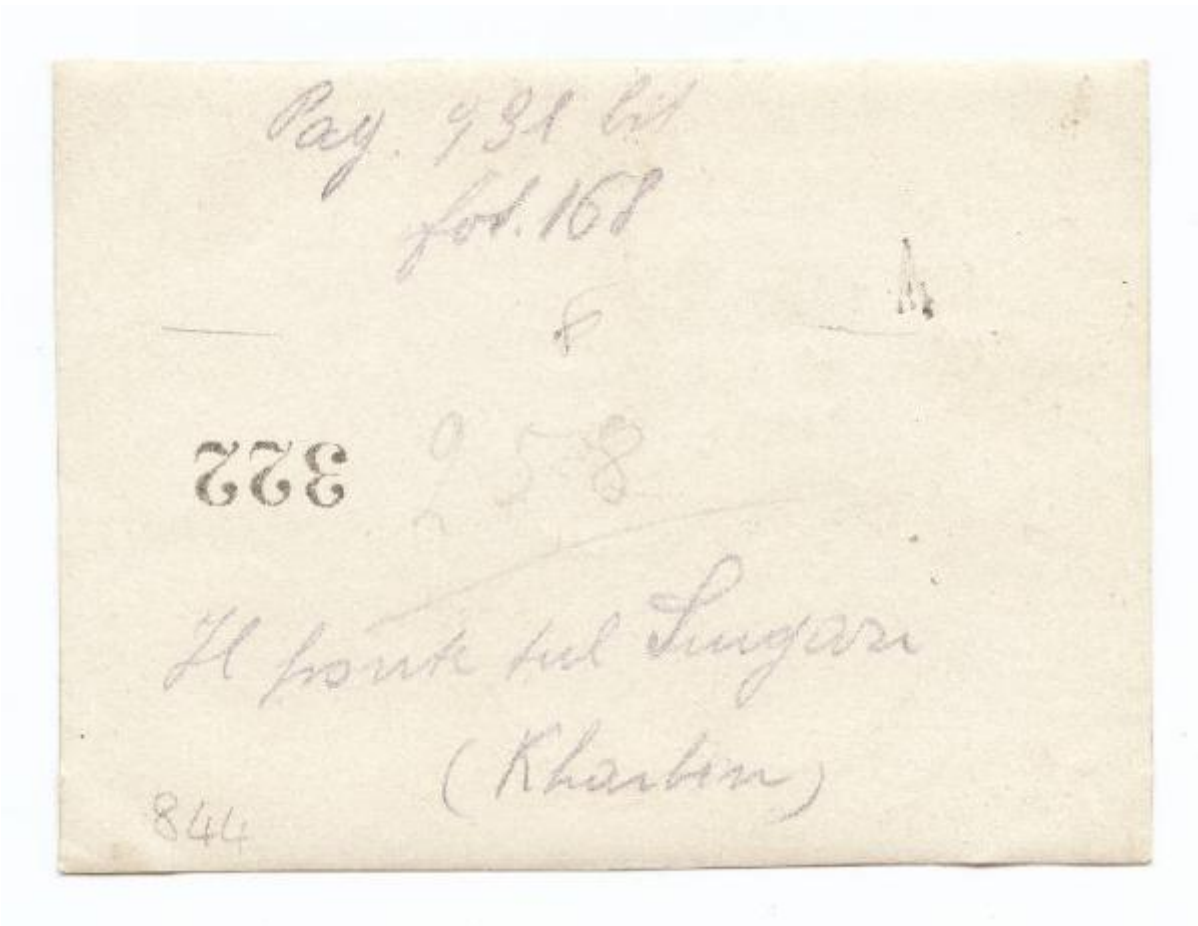 Pag. 931 bis
fot. 168
8
322
258
Il ponte sul Sungari
(Kharbin)
844